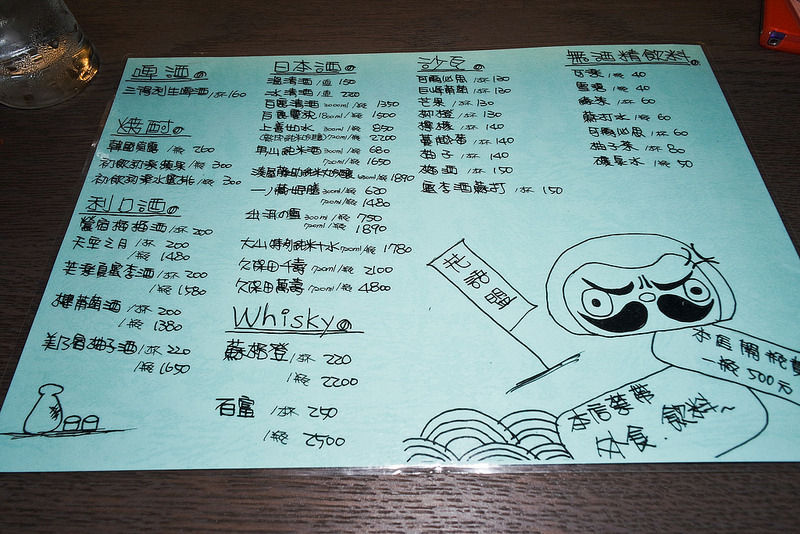 啤酒の
三得利生啤酒/杯160
燒酎の
韓國燒酒 /瓶 260
初飲初樂蘋果/瓶 300
初飲初樂水蜜桃/瓶 300
利口酒の
鶯宿梅梅酒/杯 200
天空之月/杯 200
/瓶 1480
芒種夏蜜李酒/杯 200
/瓶 1580
葡萄酒 /杯 200
/瓶 1380
柚子酒/杯 220
/瓶 1650
日本酒の
溫清酒 /壺 150
冰清酒 /壺 220
清酒 3000ml/瓶 1350
1800ml/瓶 1500
上善如水 300ml/瓶 850
720ml/瓶 2200
純米酒 300ml/瓶 680
720ml/瓶 1650
720ml/瓶 1890
300ml/瓶 620
720ml/瓶 1480
出羽の雪 300ml/瓶 750
720ml/瓶 1890
大山特別純米十水 720ml/瓶 1780
久保田千壽 720ml/瓶 2100
久保田萬壽 720ml/瓶 4800
Whiskyの
蘇格登/杯 220
/瓶 2200
百富 /杯 250
/瓶 2500
沙瓦の
可爾必思 /杯 130
巨峰葡萄 /杯 130
芒果 /杯 130
柳橙 /杯 130
檸檬 /杯 140
蔓越莓 /杯 140
柚子 /杯 140
梅酒 /杯 150
蜜李酒蘇打 /杯 150
無酒精飲料の
可樂 /瓶 40
雪碧 /瓶 40
綠茶 /杯 60
蘇打水 /瓶 60
可爾必思 /杯 60
柚子茶 /杯 80
礦泉水 /瓶 50
本店開瓶費
一瓶 500元
本店禁帶
外食.飲料~